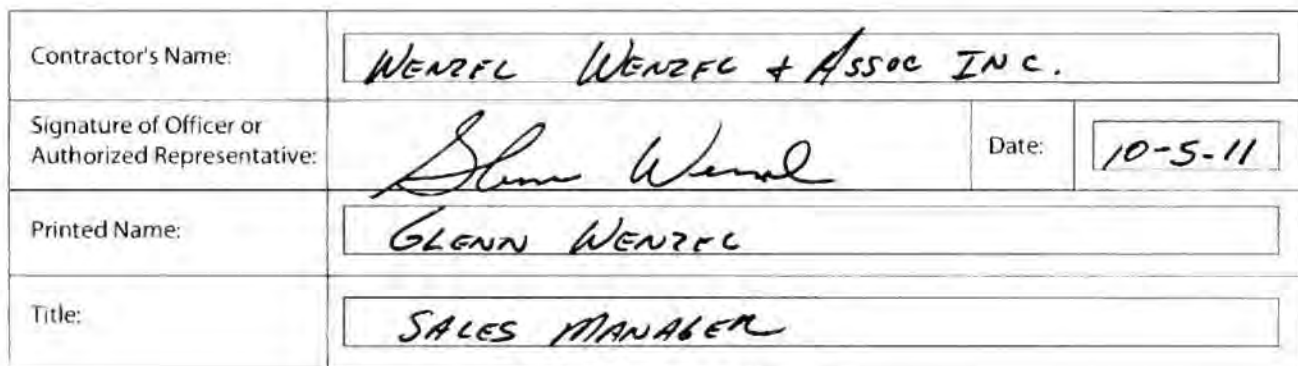 Contractor's Name: WENZEL WENZEL & ASSOC INC.
Signature of Officer or
Authorized Representative: Glenn Wenzel Date: 10-5-11
Printed Name: GLENN WENZEL
Title: SALES MANAGER